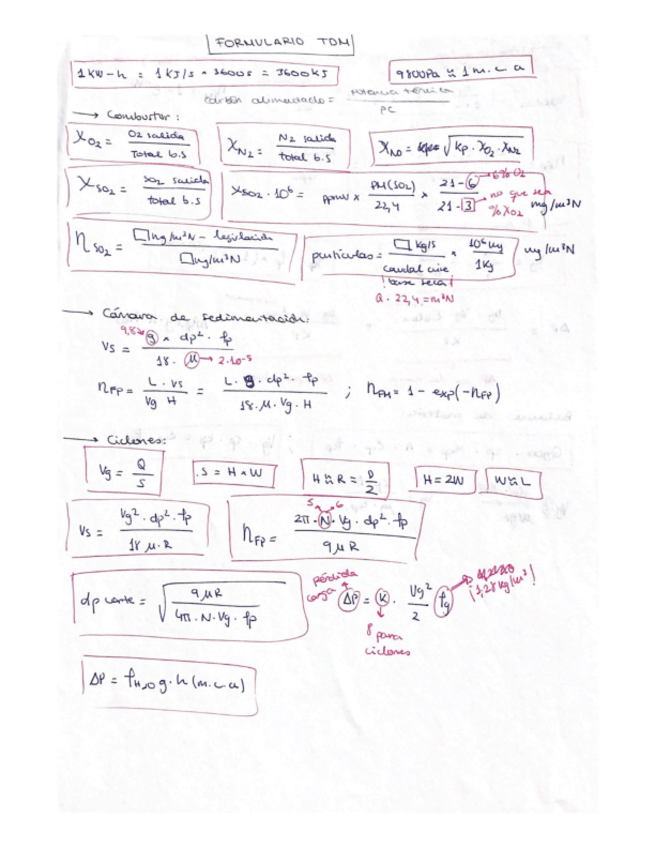 FORMULARIO TDM
1 KW-h = 1 KJ/s · 3600s = 3600 KJ
9800Pa ≈ 1 m.c.a
carbón alimentado = potencia térmica / PC
→ Combustor:
X_O2 = O2 salida / Total b.s
X_N2 = N2 salida / total b.s
X_NO = √(Kp · X_O2 · X_N2)
X_SO2 = SO2 salida / total b.s
X_SO2 · 10^6 = ppmv × PM(SO2) / 22,4 × 21-6 / 21-3 mg/m³N
→ 6% O2
→ no que sea % X_O2
η_SO2 = □mg/m³N - legislación / □mg/m³N
partículas = □ Kg/s / caudal aire · 10^6 mg / 1Kg mg/m³N
¡base seca!
Q · 22,4 = m³N
→ Cámara de sedimentación:
Vs = g · dp² · ρp / 18 · μ
9,82
→ 2·10^-5
η_FP = L · Vs / Vg H = L · g · dp² · ρp / 18 · μ · Vg · H ; η_FM = 1 - exp(-η_FP)
→ Ciclones:
Vg = Q / S
S = H · W
H ≈ R = D / 2
H = 2W
W ≈ L
Vs = Vg² · dp² · ρp / 18 μ · R
η_FP = 2π · N · Vg · dp² · ρp / 9 μ R
5 6
dp corte = √(9 μ R / 4π · N · Vg · ρp)
pérdida carga
ΔP = K · Vg² / 2 ρg
(1,28 kg/m³)!
8 para
ciclones
ΔP = ρH2O g · h (m.c.a)